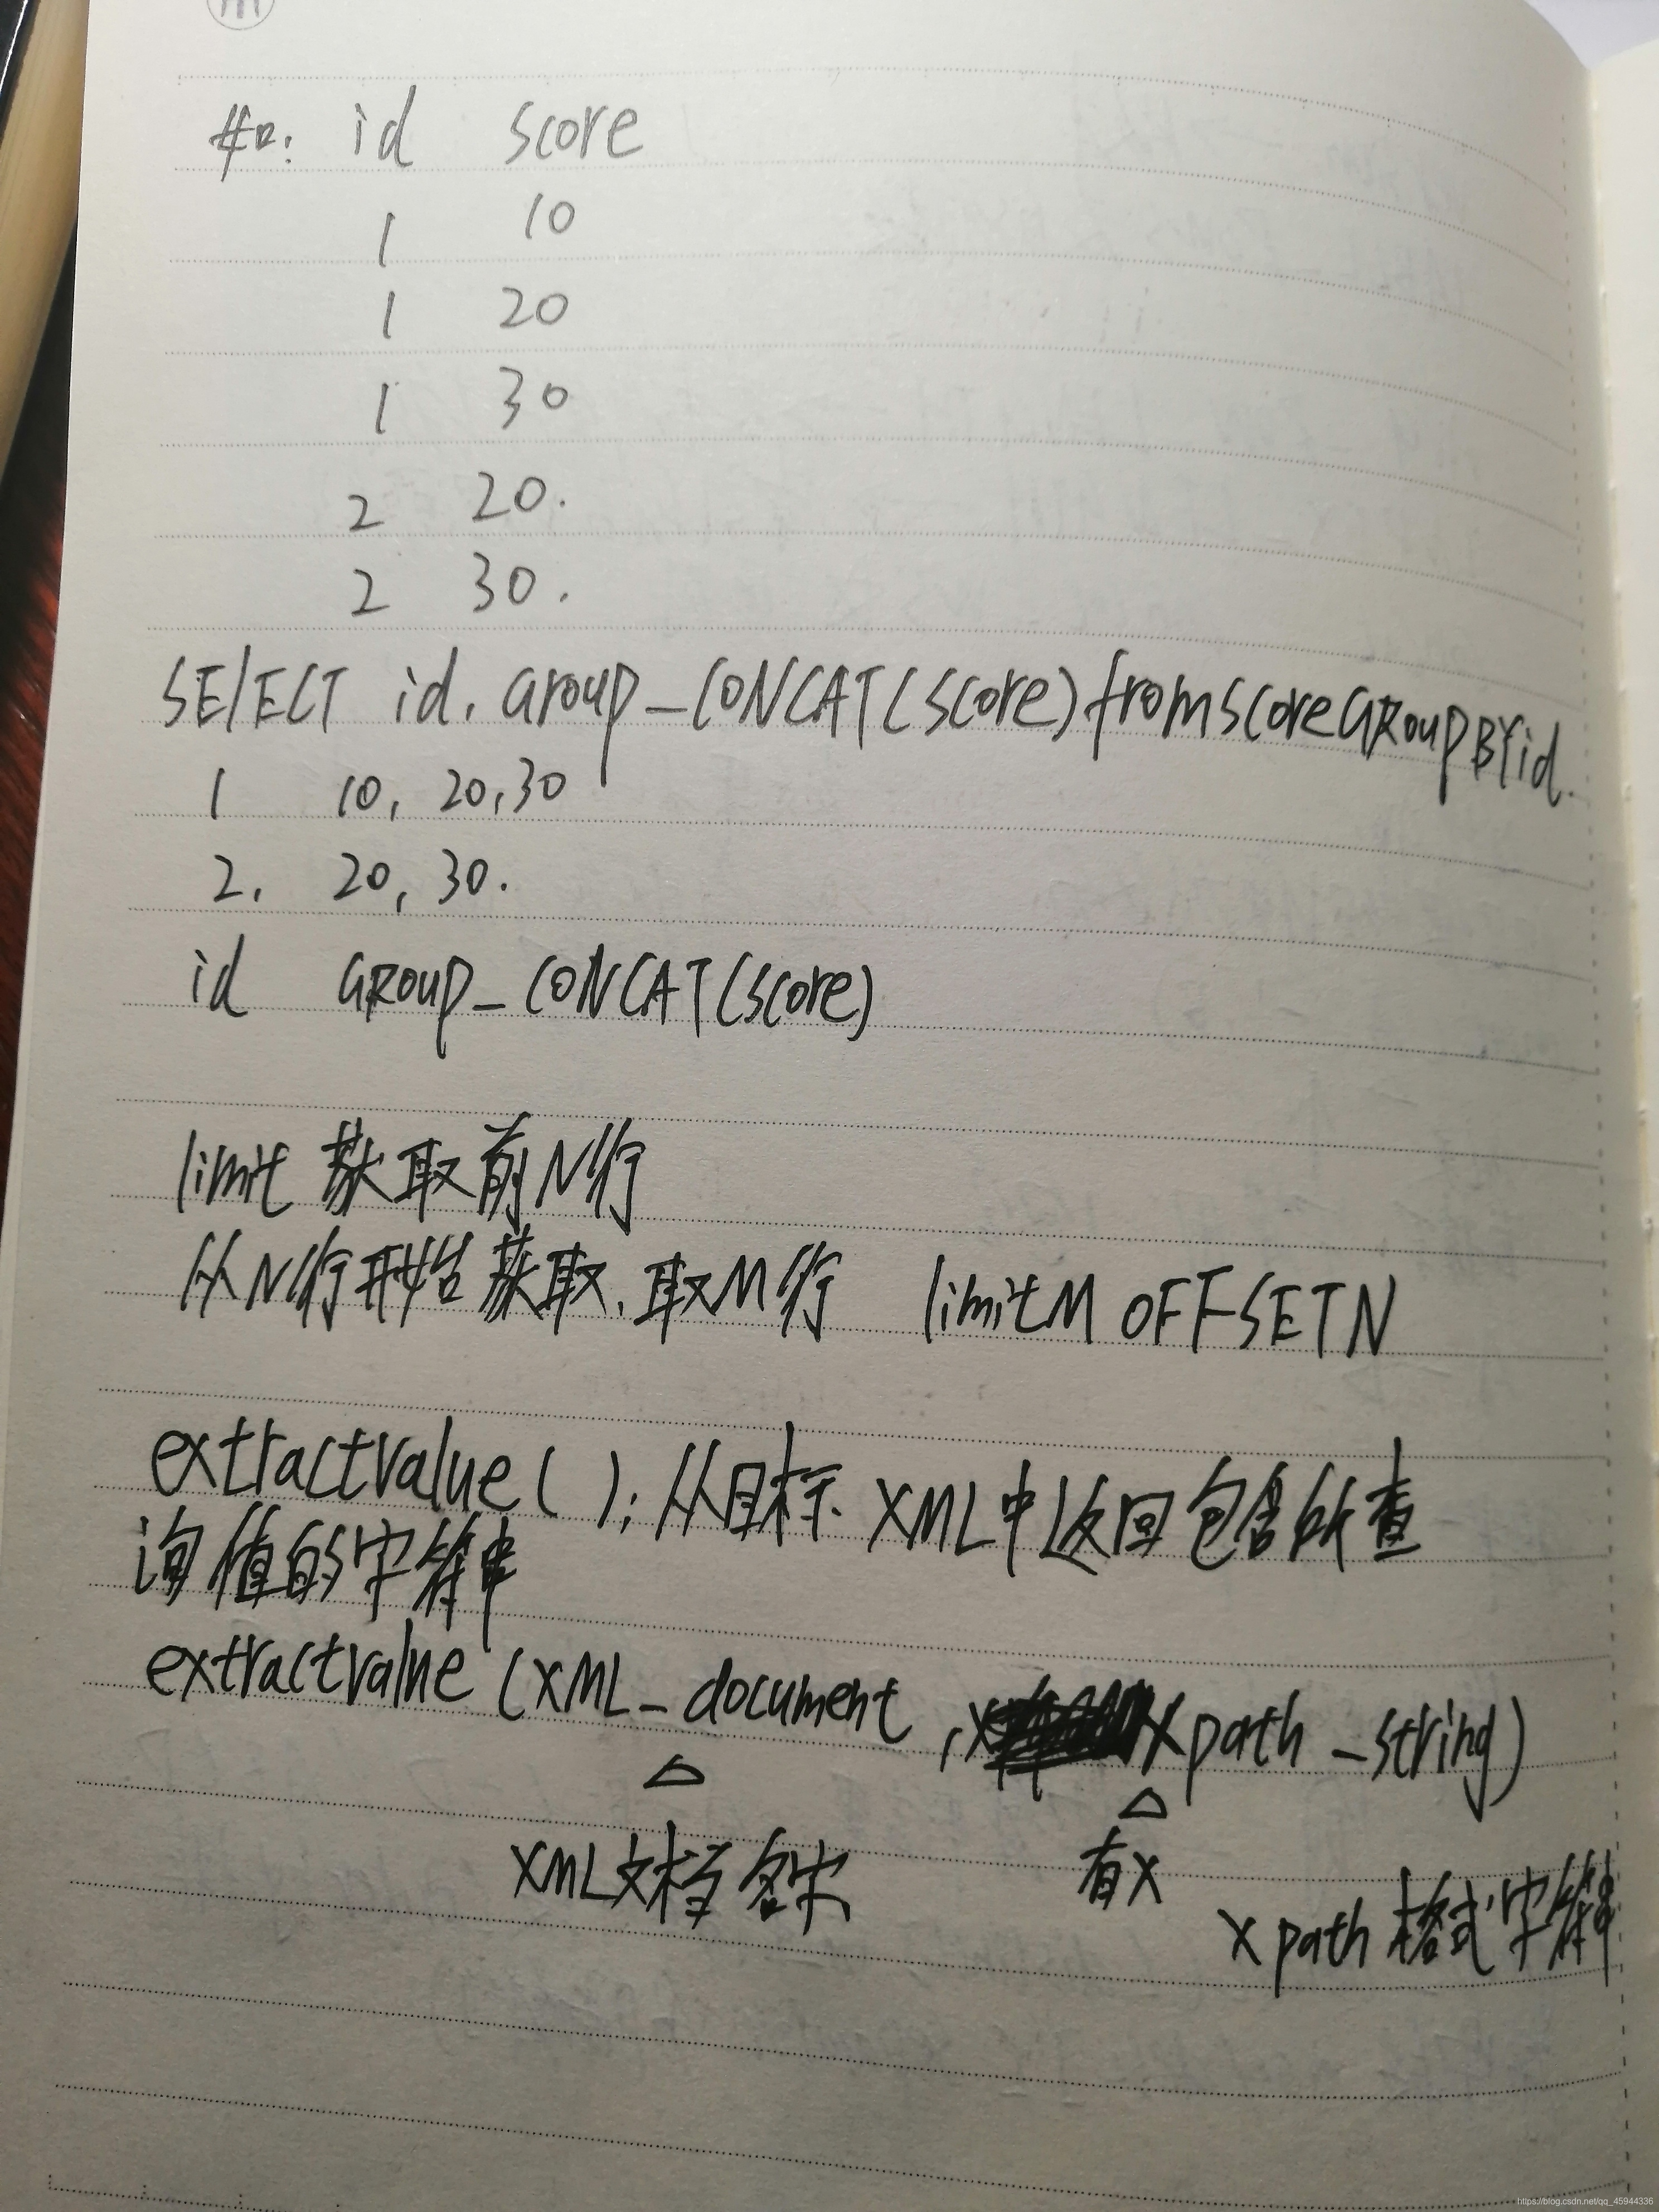 如: id score
1 10
1 20
1 30
2 20.
2 30.
SELECT id, Group_CONCAT(score) from score GROUP BY id.
1 10, 20,30
2. 20, 30.
id GROUP_CONCAT(score)
limit 获取前N行
从N行开始获取,取M行 limitM OFFSETN
extractvalue( ):从目标XML中返回包含所查
询值的字符串
extractvalue (XML_document, Xpath_string)
XML文档名字
有X
Xpath格式字符串
https://blog.csdn.net/qq_45944336